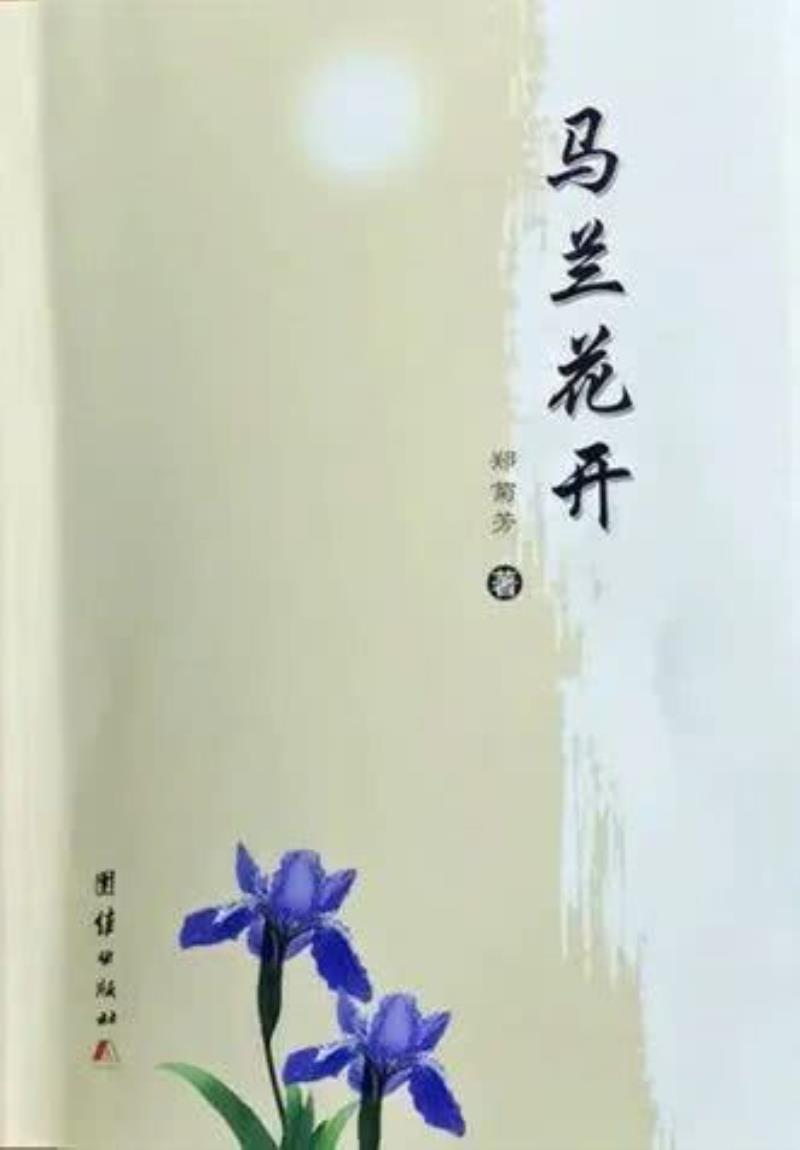 马兰花开
郑菊芳
著
团结出版社